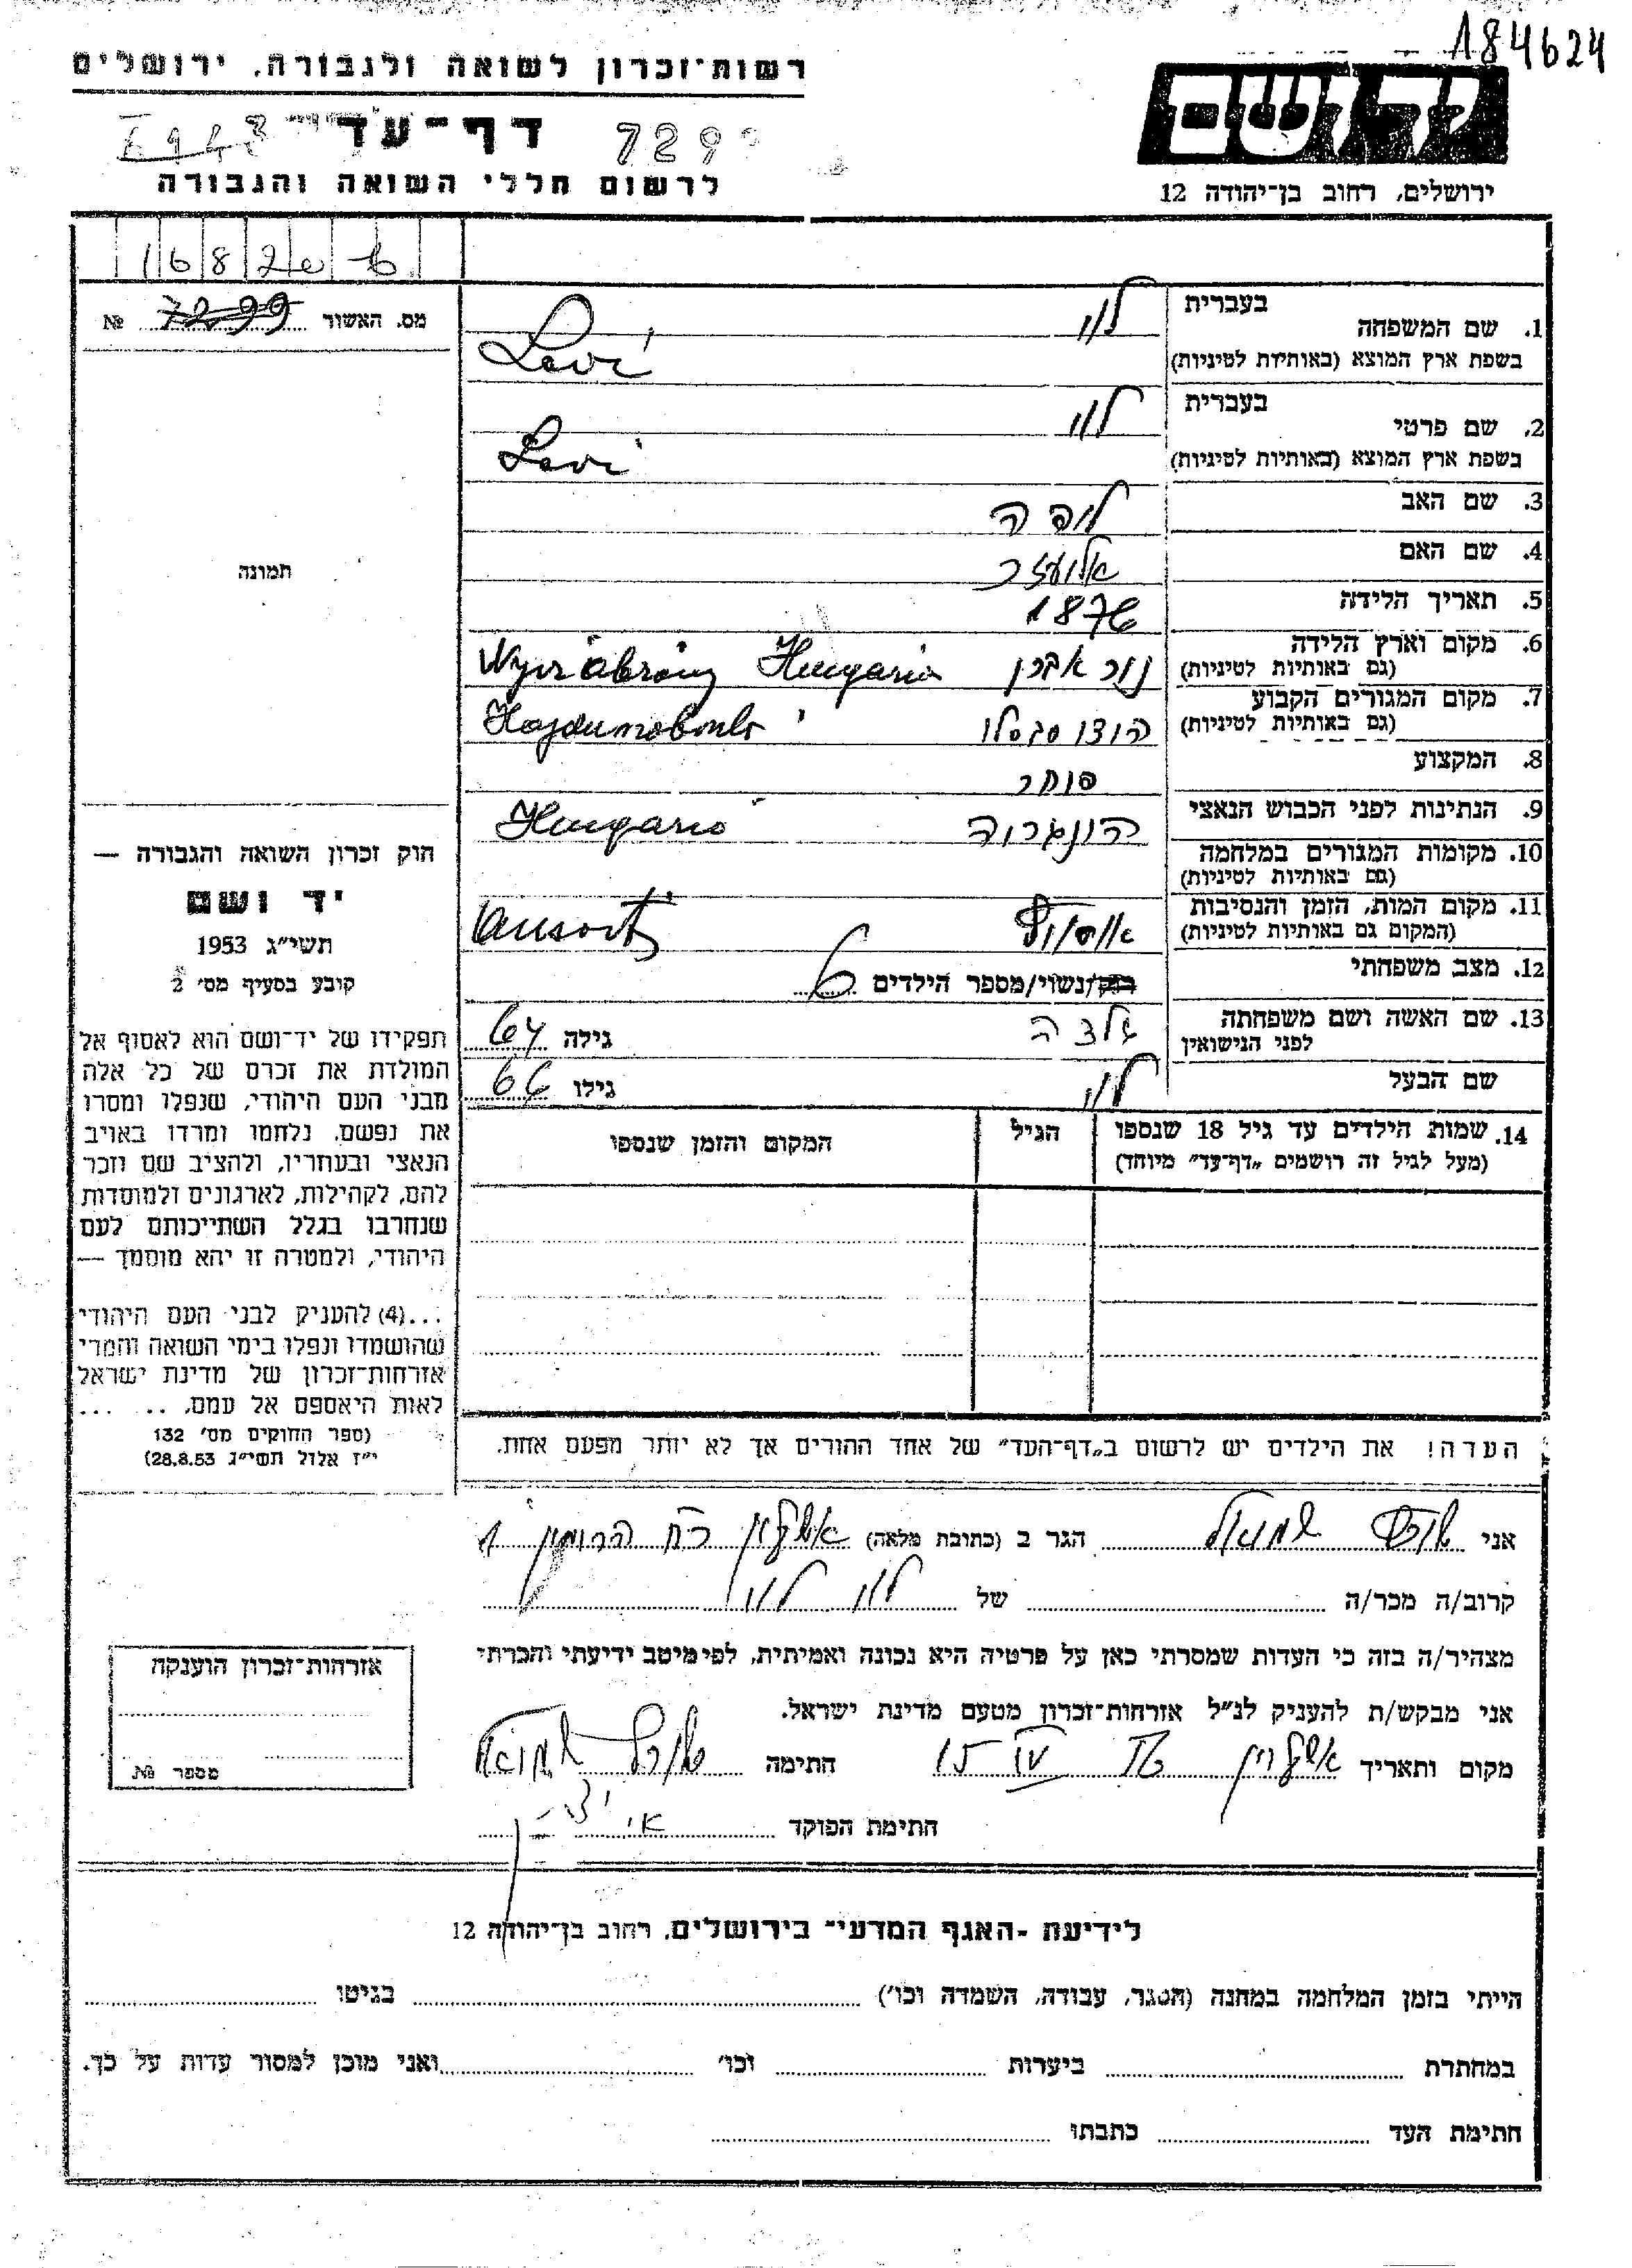 184624
רשות־זכרון לשואה ולגבורה, ירושלים
יד ושם
דף־עד
7299
לרשום חללי השואה והגבורה
ירושלים, רחוב בן־יהודה 12
מס. האשור 7299 №
1. שם המשפחה בעברית לוי
בשפת ארץ המוצא (באותיות לטיניות) Levi
2. שם פרטי בעברית לוי
בשפת ארץ המוצא (באותיות לטיניות) Levi
3. שם האב
4. שם האם
5. תאריך הלידה 1876
6. מקום וארץ הלידה
(גם באותיות לטיניות) Hungaria
7. מקום המגורים הקבוע
(גם באותיות לטיניות)
8. המקצוע סוחר
9. הנתינות לפני הכבוש הנאצי
10. מקומות המגורים במלחמה
(גם באותיות לטיניות)
11. מקום המות, הזמן והנסיבות
(המקום גם באותיות לטיניות)
12. מצב משפחתי רוק/נשוי/מספר הילדים 6
13. שם האשה ושם משפחתה
לפני הנישואין גילה 64
שם הבעל לוי גילו 66
14. שמות הילדים עד גיל 18 שנספו
(מעל לגיל זה רושמים „דף־עד״ מיוחד)
הגיל
המקום והזמן שנספו
תמונה
חוק זכרון השואה והגבורה —
יד ושם
תשי״ג 1953
קובע בסעיף מס׳ 2
תפקידו של יד־ושם הוא לאסוף אל
המולדת את זכרם של כל אלה
מבני העם היהודי, שנפלו ומסרו
את נפשם, נלחמו ומרדו באויב
הנאצי ובעוזריו, ולהציב שם וזכר
להם, לקהילות, לארגונים ולמוסדות
שנחרבו בגלל השתייכותם לעם
היהודי, ולמטרה זו יהא מוסמך —
...(4) להעניק לבני העם היהודי
שהושמדו ונפלו בימי השואה והמרי
אזרחות־זכרון של מדינת ישראל
לאות היאספם אל עמם. .. ...
(ספר החוקים מס׳ 132
י״ז אלול תשי״ג 28.8.53)
הערה! את הילדים יש לרשום ב„דף־העד״ של אחד ההורים אך לא יותר מפעם אחת.
אני שמואל הגר ב (כתובת מלאה) אשקלון
קרוב/ה מכר/ה של לוי לוי
מצהיר/ה בזה כי העדות שמסרתי כאן על פרטיה היא נכונה ואמיתית, לפי מיטב ידיעתי והכרתי
אני מבקש/ת להעניק לנ״ל אזרחות־זכרון מטעם מדינת ישראל.
מקום ותאריך אשקלון חתימה
חתימת הפוקד
אזרחות־זכרון הוענקה
מספר №
לידיעת ־האגף המדעי־ בירושלים, רחוב בן־יהודה 12
הייתי בזמן המלחמה במחנה (הסגר, עבודה, השמדה וכו׳) בגיטו
במחתרת ביערות וכו׳ ואני מוכן למסור עדות על כך.
חתימת העד כתבתו